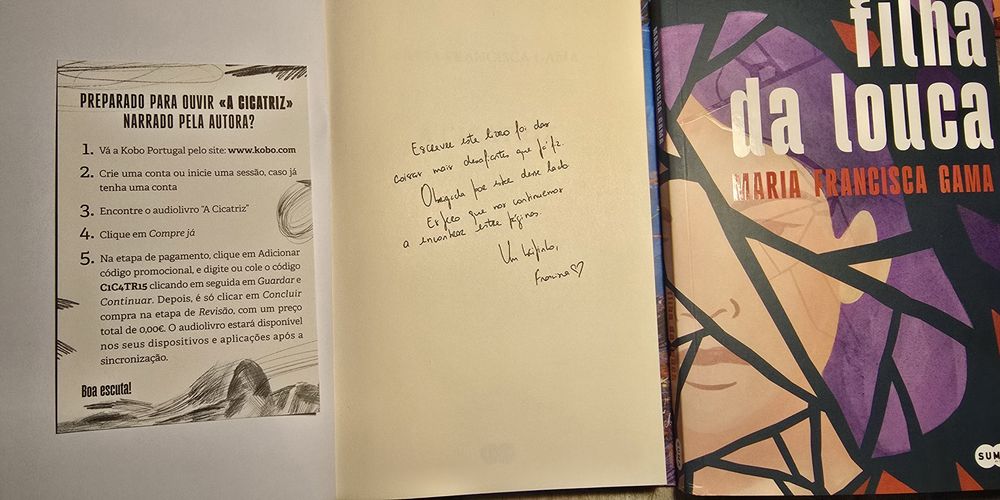 PREPARADO PARA OUVIR «A CICATRIZ»
NARRADO PELA AUTORA?
1. Vá a Kobo Portugal pelo site: www.kobo.com
2. Crie uma conta ou inicie uma sessão, caso já
tenha uma conta
3. Encontre o audiolivro "A Cicatriz"
4. Clique em Compre já
5. Na etapa de pagamento, clique em Adicionar
código promocional, e digite ou cole o código
C1C4TR15 clicando em seguida em Guardar e
Continuar. Depois, é só clicar em Concluir
compra na etapa de Revisão, com um preço
total de 0,00€. O audiolivro estará disponível
nos seus dispositivos e aplicações após a
sincronização.
Boa escuta!
Escrever este livro foi das
coisas mais desafiantes que já fiz.
Obrigada por estar desse lado
Espero que nos continuemos
a encontrar entre páginas.
Um beijinho,
MARIA FRANCISCA GAMA
filha
da louca
MARIA FRANCISCA GAMA
SUMA